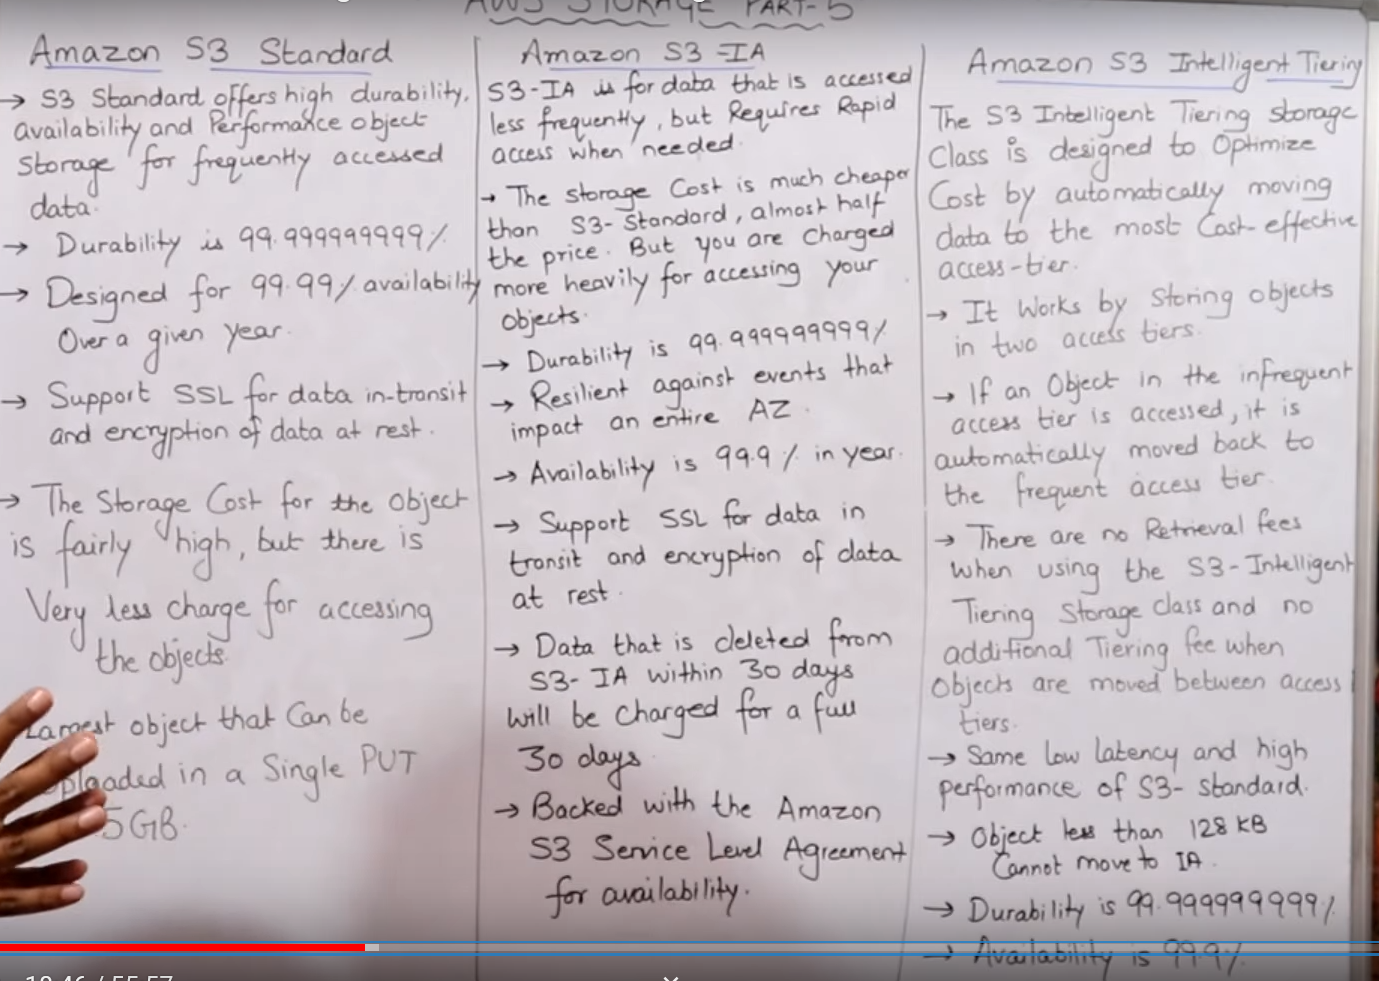 AWS STORAGE PART-5
Amazon S3 Standard
→ S3 Standard offers high durability,
availability and Performance object
Storage for frequently accessed
data.
→ Durability is 99.999999999%
→ Designed for 99.99% availability
Over a given year.
→ Support SSL for data in-transit
and encryption of data at rest.
→ The Storage Cost for the object
is fairly high, but there is
Very less charge for accessing
the objects.
Largest object that Can be
uploaded in a Single PUT
5GB.
Amazon S3-IA
S3-IA is for data that is accessed
less frequently, but Requires Rapid
access when needed.
→ The storage Cost is much cheaper
than S3-Standard, almost half
the price. But you are Charged
more heavily for accessing your
objects.
→ Durability is 99.999999999%
→ Resilient against events that
impact an entire AZ.
→ Availability is 99.9% in year.
→ Support SSL for data in
transit and encryption of data
at rest.
→ Data that is deleted from
S3-IA within 30 days
will be Charged for a full
30 days
→ Backed with the Amazon
S3 Service Level Agreement
for availability.
Amazon S3 Intelligent Tiering
The S3 Intelligent Tiering storage
Class is designed to Optimize
Cost by automatically moving
data to the most Cost-effective
access-tier.
→ It Works by Storing objects
in two access tiers.
→ If an Object in the infrequent
access tier is accessed, it is
automatically moved back to
the frequent access tier.
→ There are no Retrieval fees
When using the S3-Intelligent
Tiering Storage class and no
additional Tiering fee when
Objects are moved between access
tiers.
→ Same low latency and high
performance of S3-standard.
→ Object less than 128 KB
Cannot move to IA.
→ Durability is 99.999999999%
→ Availability is 99.9%
18:46 / 55:57